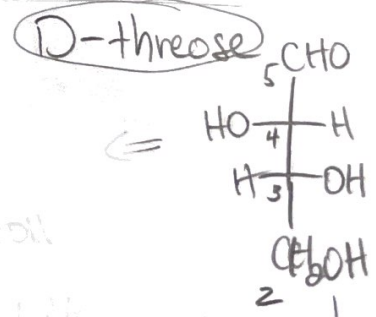 D-threose
5 CHO
HO 4 H
H 3 OH
CH2OH
2 1